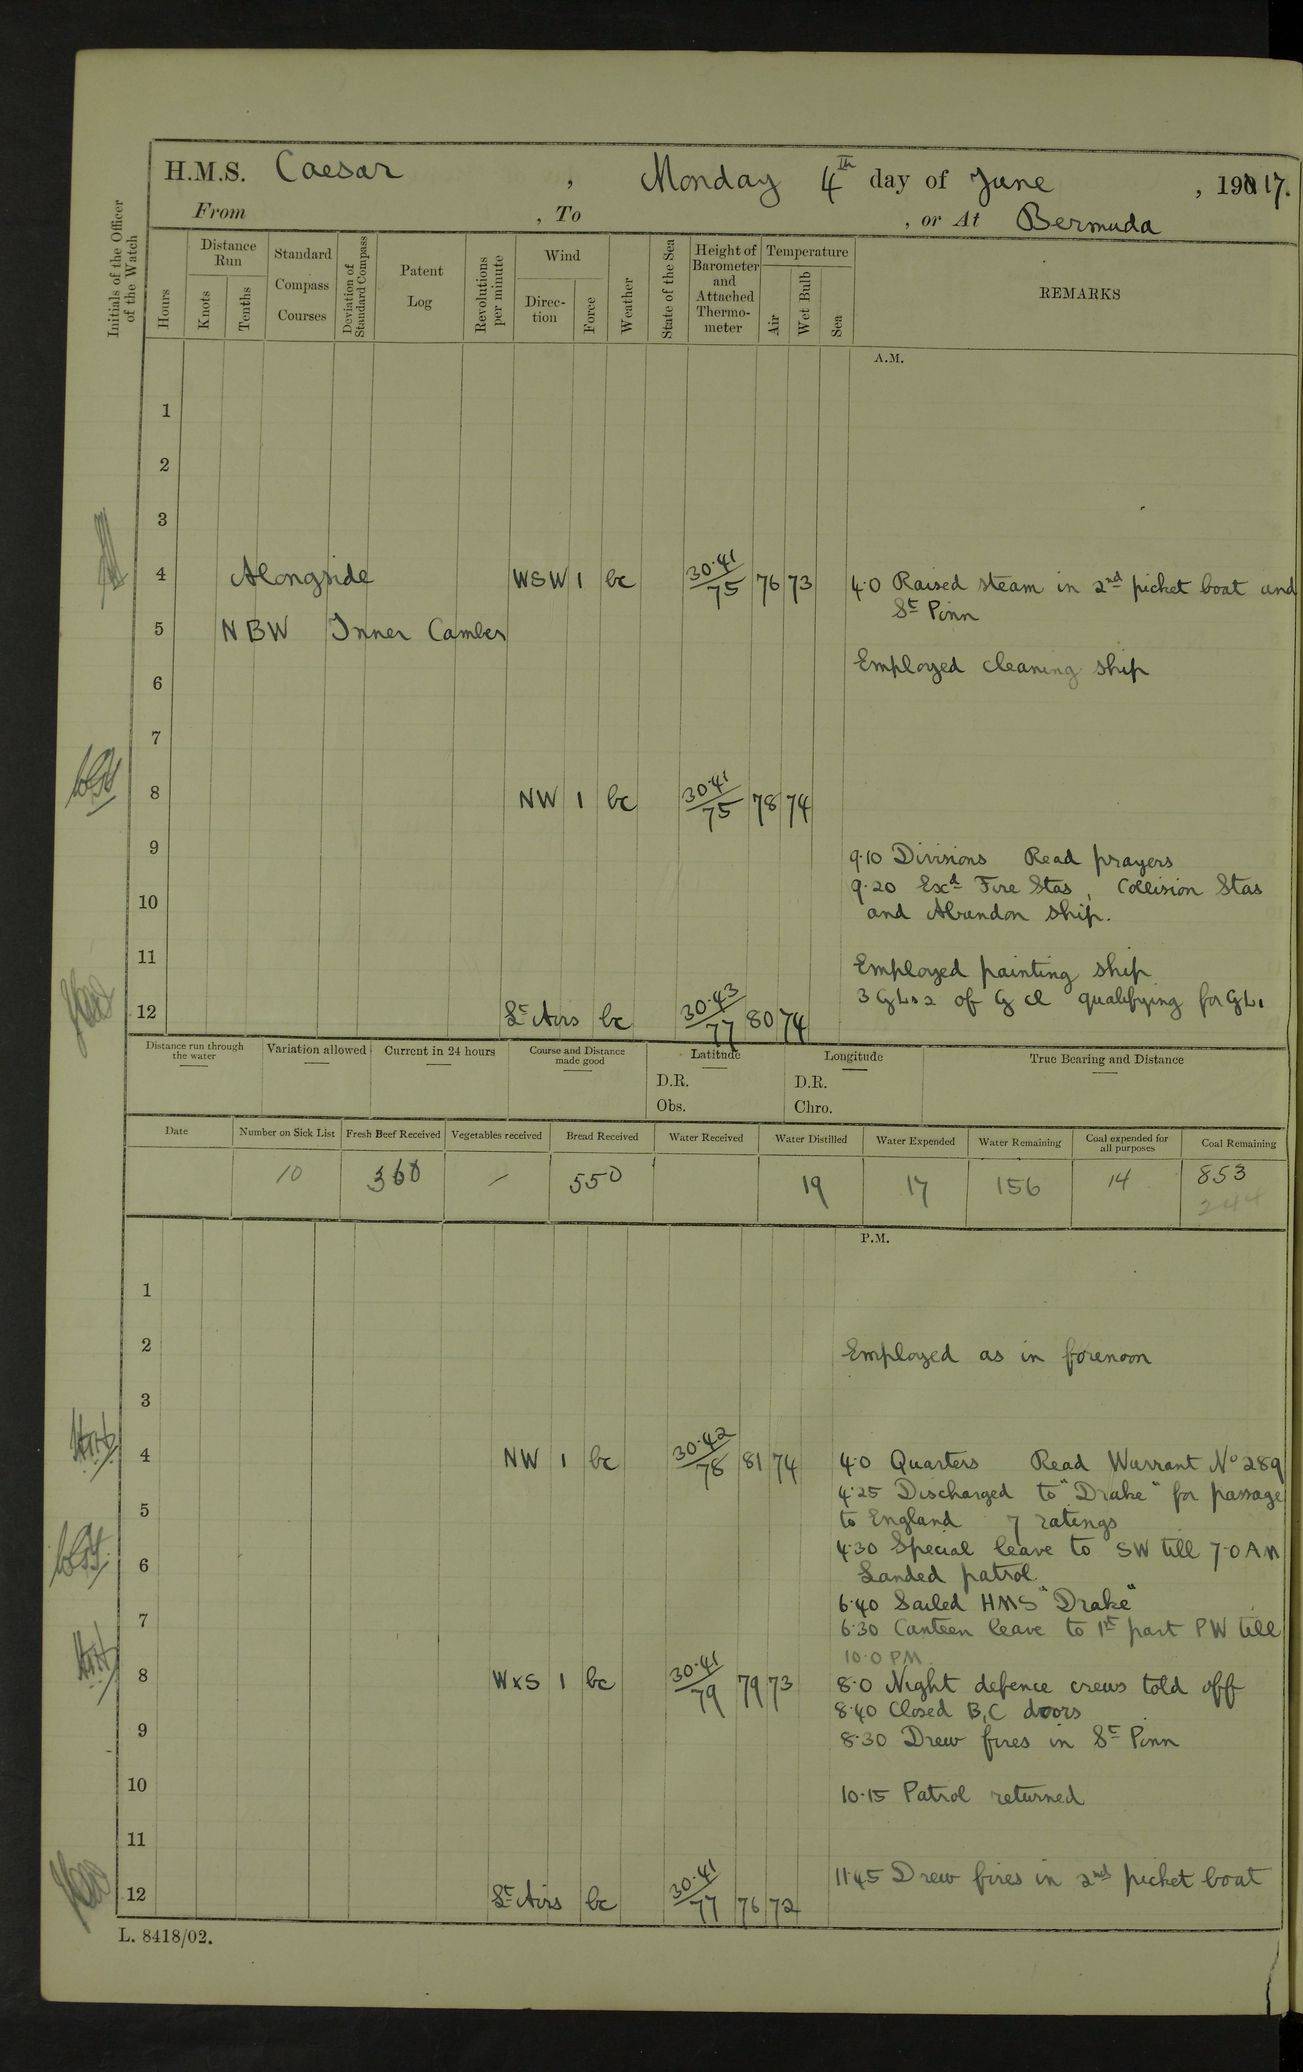 H.M.S. Caesar , Monday 4th day of June , 1917.
From , To , or At Bermuda
Initials of the Officer of the Watch
Hours
Distance Run
Knots
Tenths
Standard Compass Courses
Deviation of Standard Compass
Patent Log
Revolutions per minute
Wind
Direc- tion
Force
Weather
State of the Sea
Height of Barometer and Attached Thermo- meter
Temperature
Air
Wet Bulb
Sea
REMARKS
A.M.
1
2
3
4 Alongside WSW 1 bc 30.41/75 76 73 4.0 Raised steam in 2nd picket boat and
St Pinn
5 NBW Inner Camber
Employed cleaning ship
6
7
8 NW 1 bc 30.41/75 78 74
9
9.10 Divisions Read prayers
9.20 Excd Fire Stas, Collision Stas
10
and Abandon ship.
11
Employed painting ship
3 GLs2 of G cl qualifying for GL1
12 Lt Airs bc 30.43/77 80 74
Distance run through the water
Variation allowed
Current in 24 hours
Course and Distance made good
Latitude
D.R.
Obs.
Longitude
D.R.
Chro.
True Bearing and Distance
Date Number on Sick List Fresh Beef Received Vegetables received Bread Received Water Received Water Distilled Water Expended Water Remaining Coal expended for all purposes Coal Remaining
10 360 / 550 19 17 156 14 853
244
P.M.
1
2 Employed as in forenoon
3
4 NW 1 bc 30.42/78 81 74 4.0 Quarters Read Warrant No 289
4.25 Discharged to "Drake" for passage
5
to England 7 ratings
4.30 Special leave to SW till 7.0 AM
6
Landed patrol.
6.40 Sailed HMS "Drake"
7
6.30 Canteen leave to 1st part PW till
10.0 PM.
8 WxS 1 bc 30.41/79 79 73 8.0 Night defence crews told off
8.40 Closed B,C doors
9
8.30 Drew fires in St Pinn
10
10.15 Patrol returned
11
11.45 Drew fires in 2nd picket boat
12 Lt Airs bc 30.41/77 76 72
L. 8418/02.